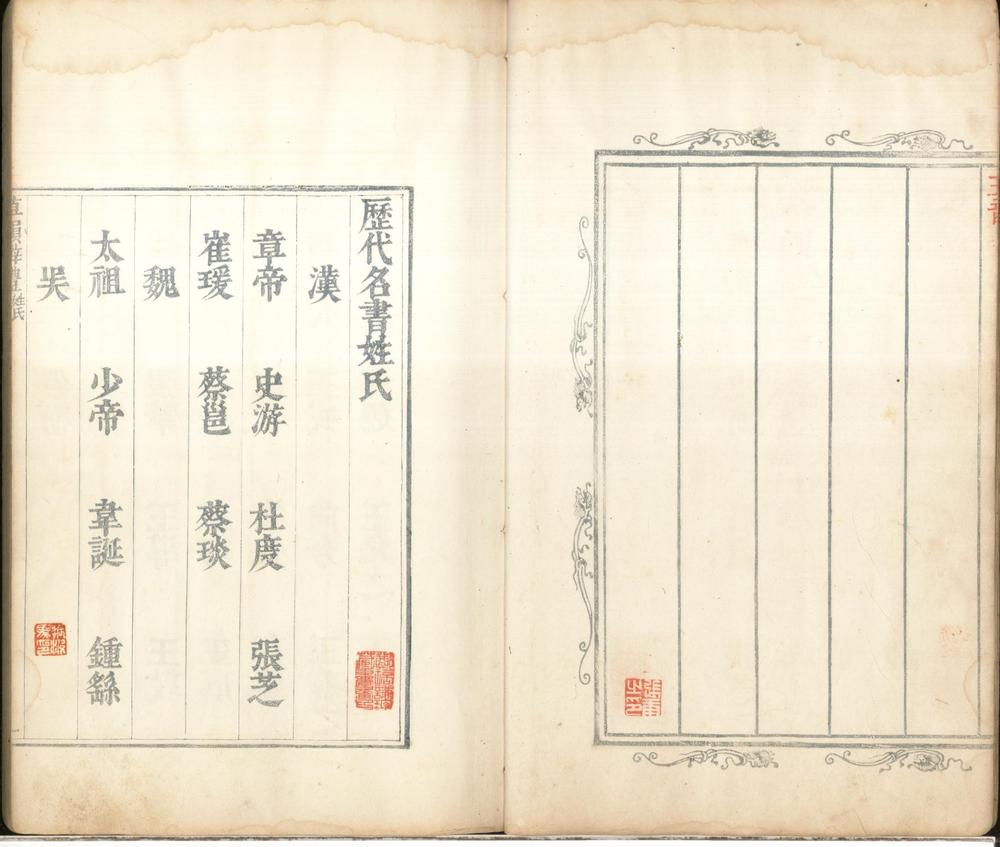 歷代名書姓氏
漢
章帝 史游 杜度 張芝
崔瑗 蔡邕 蔡琰
魏
太祖 少帝 韋誕 鍾繇
吴
草韻辨體 姓氏